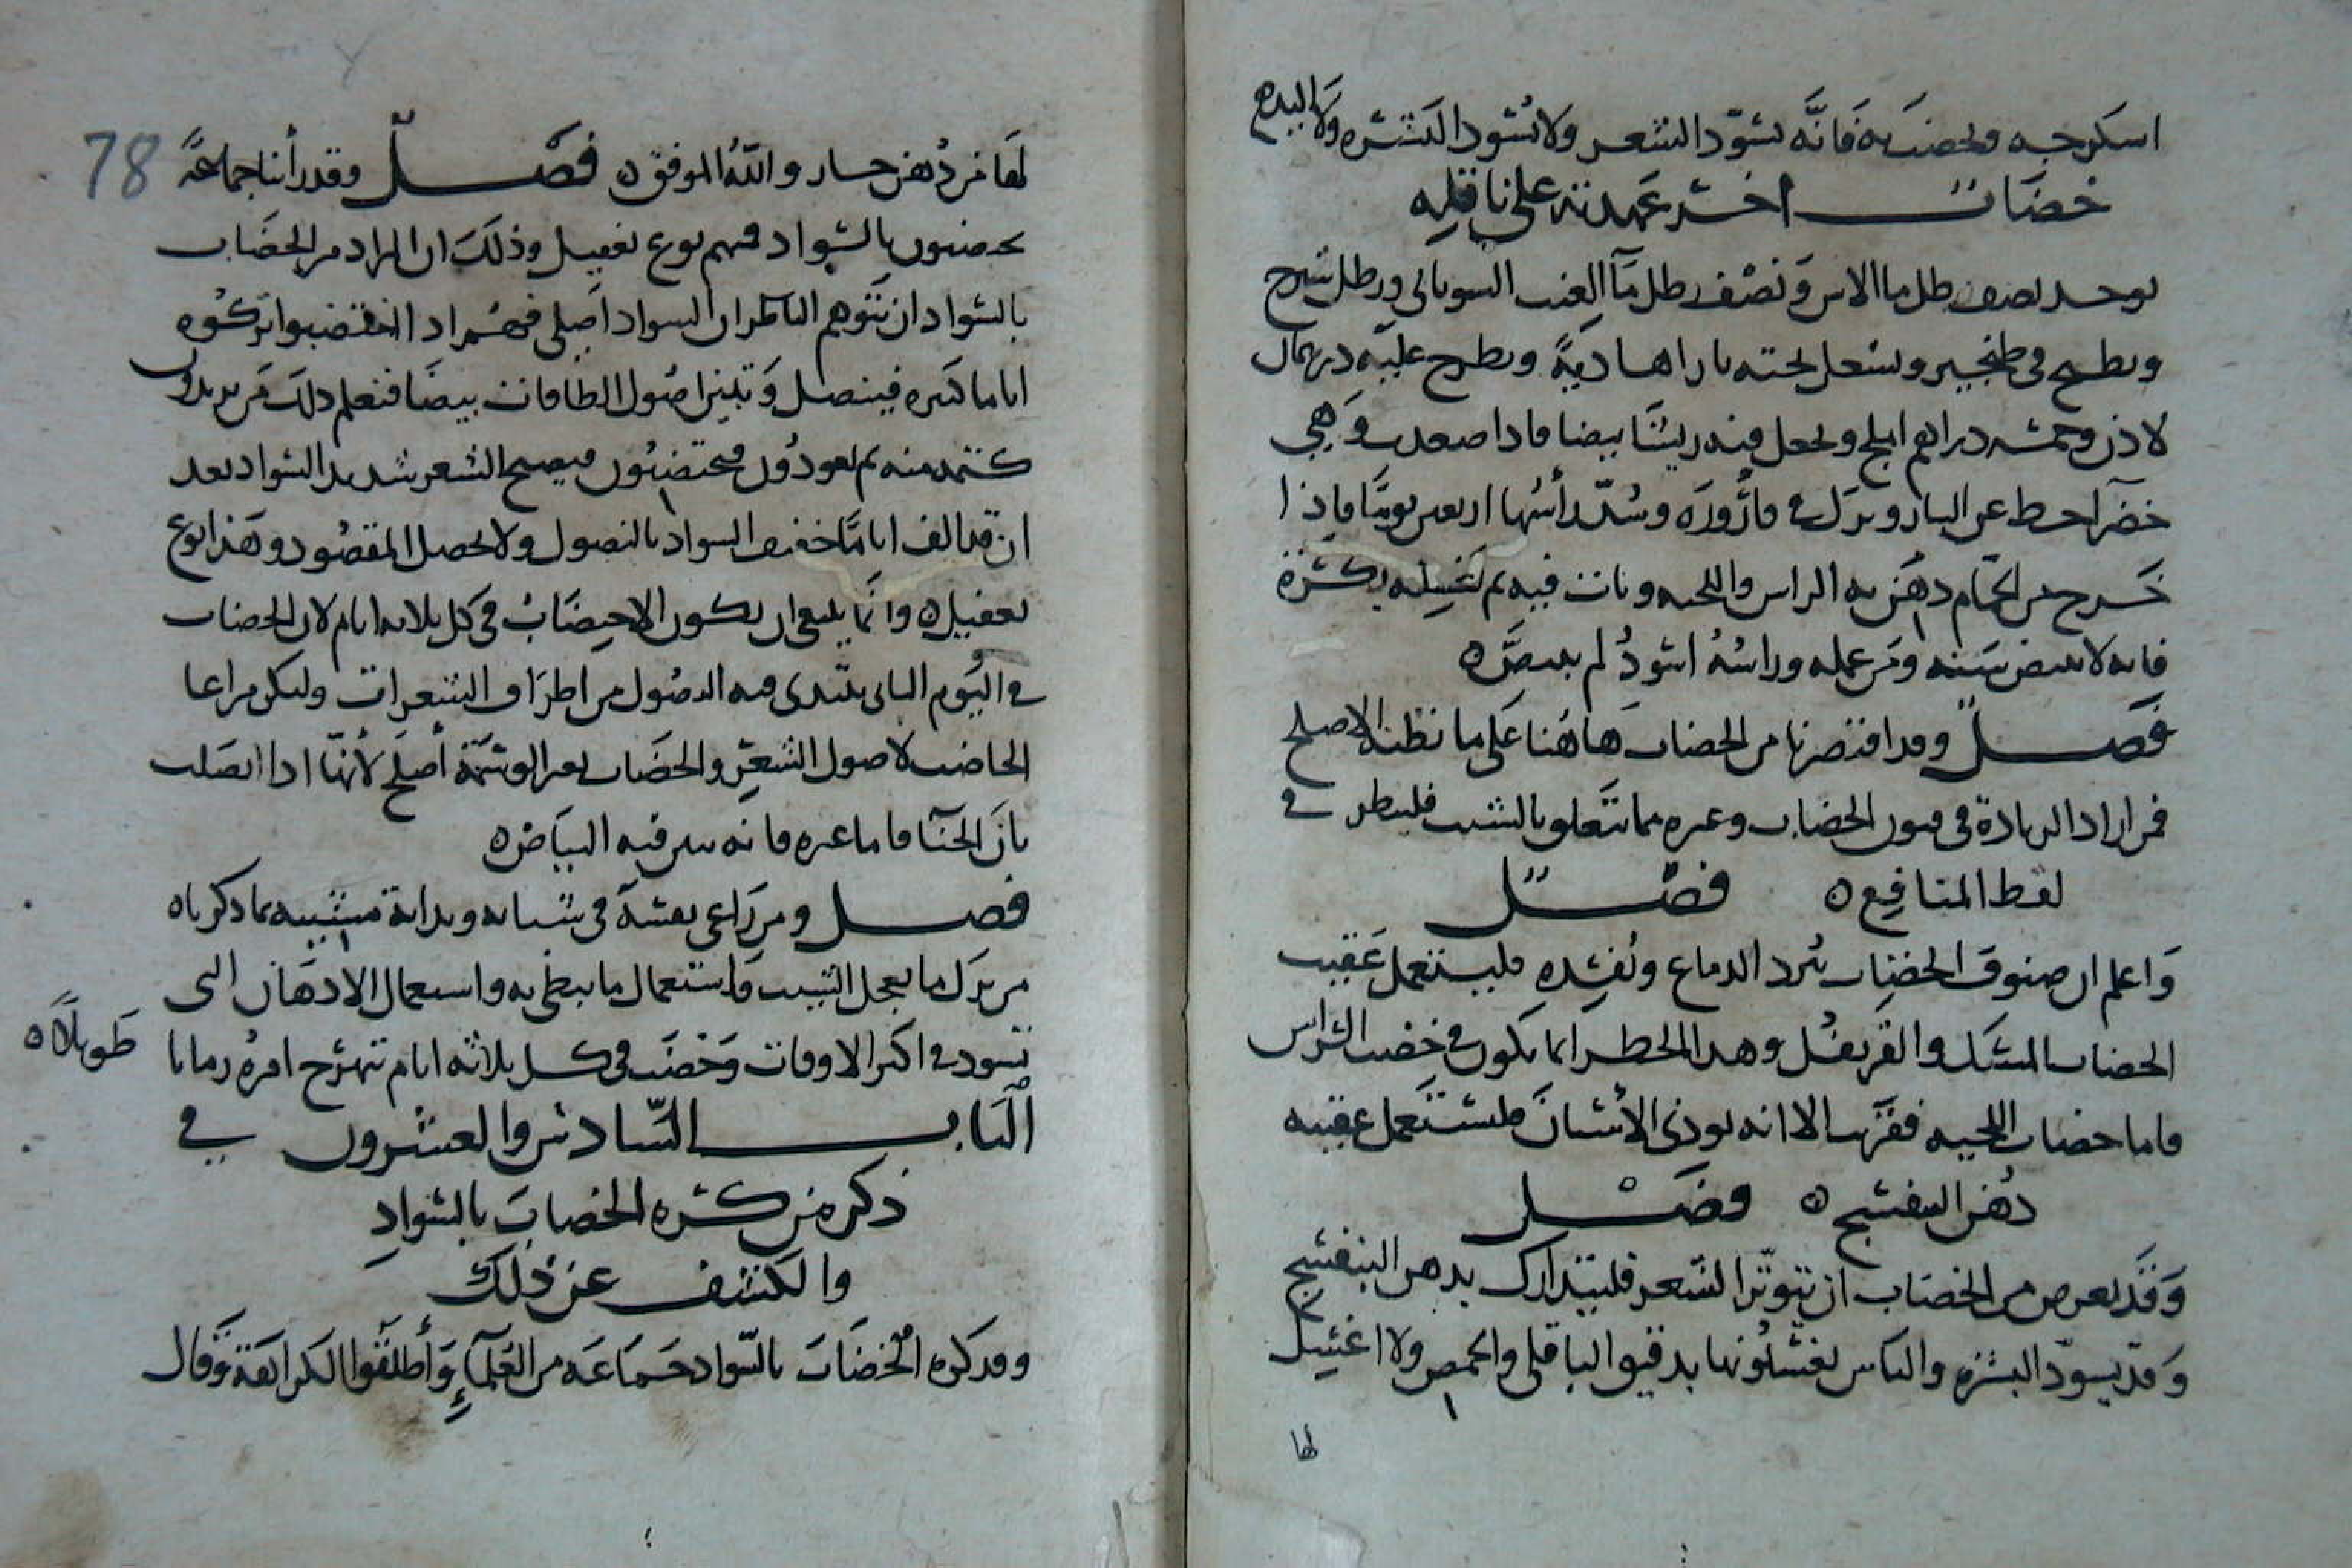 اسكرجه ويخضب به فَانَّه يسَوّد الشعر ولا يُسَود البَشره ولا اليد
خضاب اخر عهدته على ناقله
يوخد نصف رطل ما الاس وَنصْف رطل مَآ العنب السوناني ورطل شيرج
ويطرح في طنجير ويشعل تحته نار اهاديةً ويطرح عليه درهمان
لاذن وخمسه دراهم املج ويجعل فيه ريشًا بيضا فاذا صعدت وَهي
خضرا حط عن النار وترك في قارُورَه وسُدّ رأسُها اربعين يومًا فاذا
خَرج من الحمّام دهَن به الراس واللحيه وبات فيه ثم يَغسِله بكشرة
فانه لا يبيض سَنه ومَن عمله وراسُهُ اسَودُ لم يبيضَّ ه
فَصل وقد اقتصرنا من الخضاب هَاهُنا عَلى ما نظنه الاصلح
فمن اراد الزيادة في فنون الخضاب وغيره مما يتَعلق بالشيب فلينظر في
لقط المنافِع ه فصل
وَاعلم ان صنوف الخضاب تبُرد الدماغ وتُفسِده فليستعمل عَقيب
الخضاب المسَك والقَرنفُل وهذا الخطر انما يكون في خضب الرَّاس
فاما خضاب اللحيه فقرَيب الا انه يوذى الأسنانَ فليسَتَعمل عقيبه
دُهن البنفسَج ه فصَل
وَقَد يعرض من الخضَاب ان يتوتّر الشَعر فليتدارك بدهن البنفسَج
وَقدّ يسوّد البشره والناس يغسّلُونها بدقيق الباقلى والحمص ولا اغسِل
لها
78
لهَا من دُهن حار واللهُ الموفق ه فصل وقد رأينا جماعَةً
يخضبون بالسَواد فيهم نوع تغفيل وذلكَ ان المراد من الخضَاب
بالسَواد ان يتَوهم الناظر ان السواد اصلى فهُم اذا اختضبوا تركوه
اياما كثيره فينصل وَتبين اصُول الطاقات بيضًا فتعلم ذلك مَن يريدون
كتمه منه ثم يعودُون فيختضبُون فيصبح الشعر شديد السَواد بعد
ان قد الف ايامًا خفيف السواد بالنصول ولا يحصل المقصُود وهَذا نوع
تغفيل ه وانَّما ينبغى ان يكون الاختضَابُ في كل ثلاثه ايام لان الخضاب
في اليَوم الثانى يبتَدى فيه النصُول من اطرَاف الشعرات وليكن مراعا
الخاضب لاصول الشعرَ والخضَاب بغير الوسَمة أصلح لأنهّا اذا اتصَلت
بانَ الحنَّا فاما غيره فانه يبين فيه البيَاض ه
فصل ومن رَاعى نفسَه في شبابه وبداية مشَيبه بما ذكرناه
من ترَك ما يعجل الشَيب وَاستعمال ما يبطى به واستعمال الادهَان التى
تسود في اكثر الاوقات وَخضَب في كل ثلاثه ايام تبهرج امرهُ زمانا
طَويلًا ه
البَاب السَّادسُ والعشرون في
ذكر من كره الخضابَ بالسَوادِ
والكشف عن ذلك
وقد كره الخضَابَ بالسّواد جَماعَه من العُلَماءِ وَأطلَقوا الكراهَة وَقال